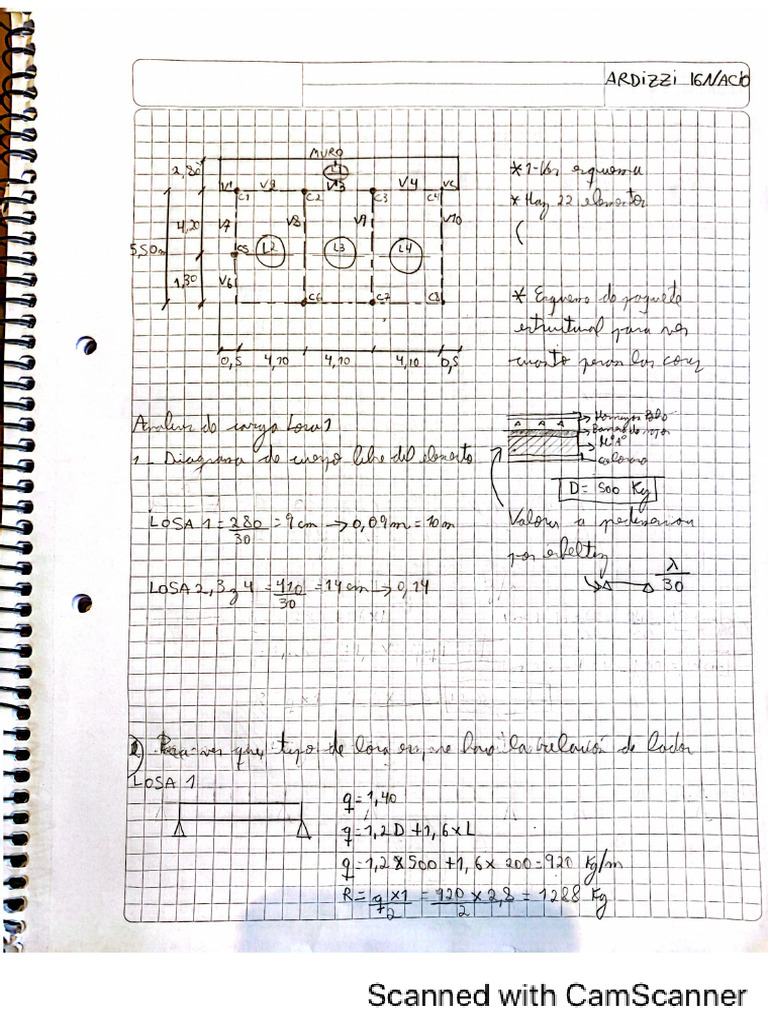 ARDIZZI IGNACIO
MURO
2,80
L1
V1 V2 V3 V4 V5
C1 C2 C3 C4
4,20 V7 V8 V9 V10
5,50m
C5 L2 L3 L4
1,30 V6
C6 C7 C8
0,5 4,10 4,10 4,10 0,5
* 1-Ver esquema
* Hay 22 elementos
(
* Esquema de paquete
estructural para ver
cuanto pesan las
Analisis de carga Losa 1
1_ Diagrama de cuerpo libre del elemento
LOSA 1 = 280/30 = 9 cm → 0,09m = 10m
LOSA 2,3 y 4 = 410/30 = 14 cm → 0,14
D = 500 Kg
Valores a
por esbeltez
λ/30
2 Para ver que tipo de losa es, me hago la relación de lados
LOSA 1
q = 1,40
q = 1,2 D + 1,6 x L
q = 1,2 x 500 + 1,6 x 200 = 920 Kg/m
R = q x 1/2 = 920 x 2,8/2 = 1288 Kg
Scanned with CamScanner